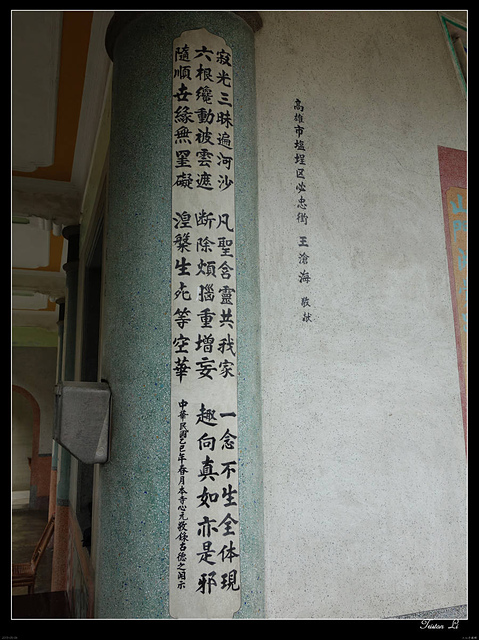 寂光三昧遍河沙　凡聖含靈共我家　一念不生全体現
六根纔動被雲遮　断除煩惱重增妄　趣向真如亦是邪
隨順世緣無罣礙　湼槃生死等空華
中華民國乙巳年春月本寺心元敬錄古德之開示
高雄市塩埕区必忠街 王滄海 敬献
Tristan Li